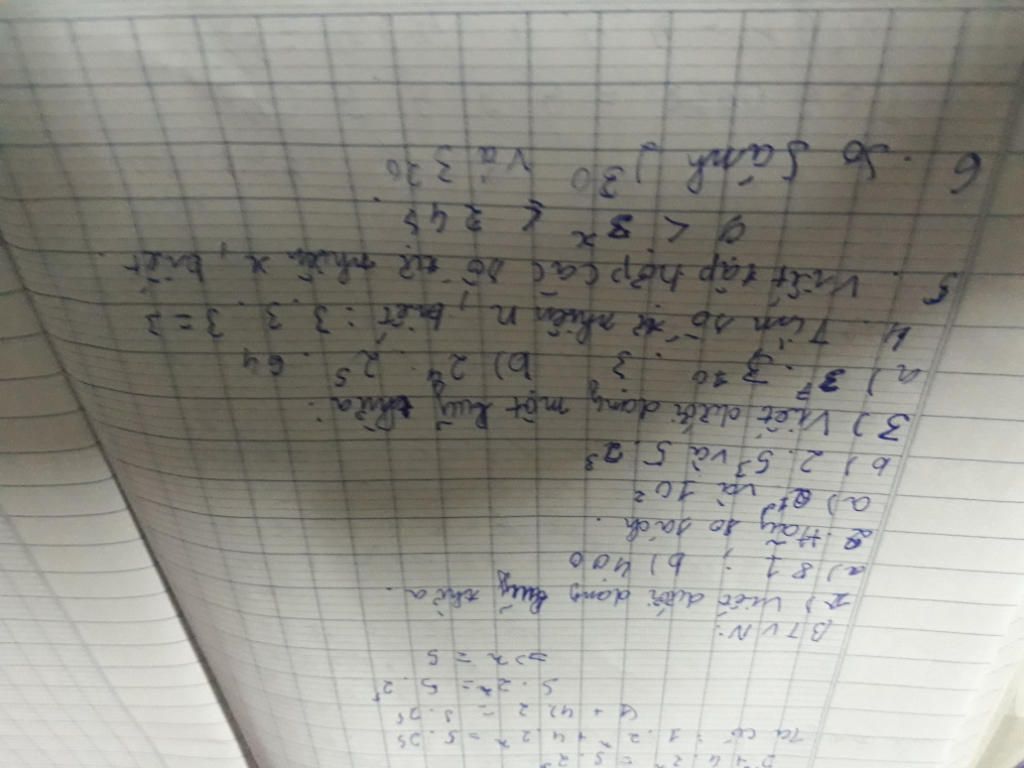 2ˣ + 4.2ˣ = 5.2⁵
Ta có: 1.2ˣ + 4.2ˣ = 5.2⁵
5.2ˣ = 5.2⁵
=> x = 5
BTVN:
1) Viết dưới dạng luỹ thừa.
a) 81 ; b) 400
2. Hãy so sách.
a) và 10²
b) 2.5³ và 5.2³
3) Viết dưới dạng một luỹ thừa:
a) b) 2⁴.2⁵.64
4. Tìm số tự nhiên n, biết:
5. Viết tập hợp các số tự nhiên x, biết
9 < 3ˣ < 245.
6. So sánh 2³⁰ và 3²⁰